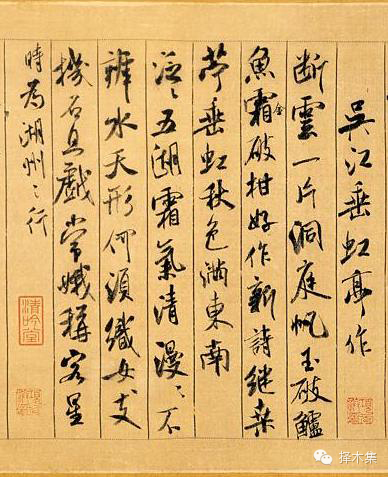 吳江垂虹亭作
断雲一片洞庭帆玉破鱸
魚霜金破柑好作新詩継桑
苧垂虹秋色満東南
泛〻五湖霜氣清漫〻不
辨水天形何須織女支
機石且戲常娥稱客星
時為湖州之行
清吟堂
择木集